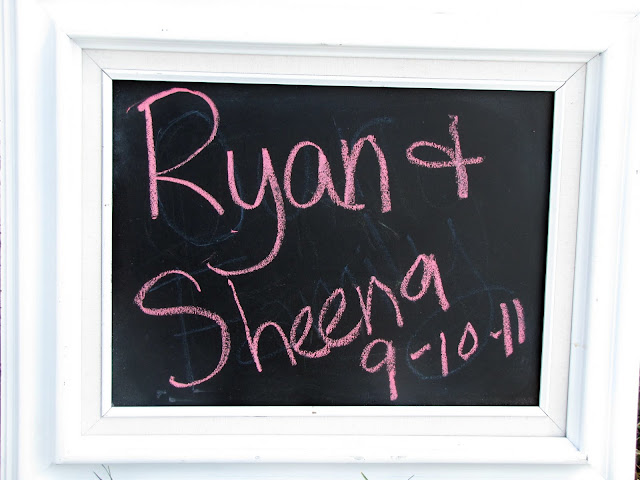 Ryan &
Sheena
9-10-11